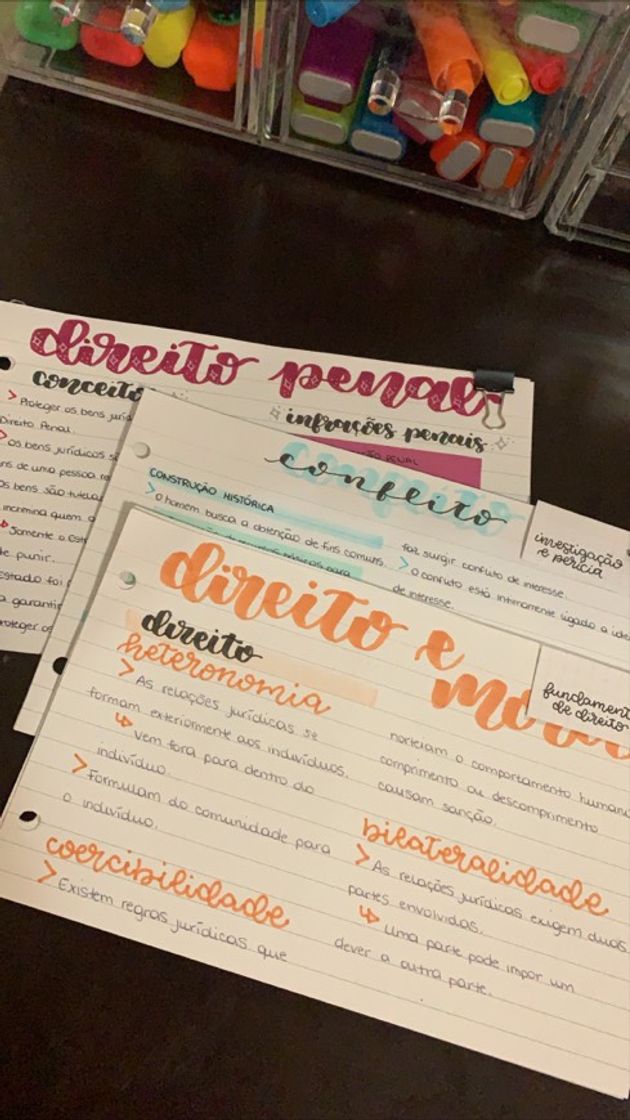 direito penal
conceito
> Proteger os bens
Direito Penal.
> Os bens jurídicos
de uma pessoa
Os bens são
incrimina quem
Somente o
de punir.
Estado foi
a
proteger os
infrações penais
PENAL
conflito
CONSTRUÇÃO HISTÓRICA
> o homem busca a obtenção de fins comuns.
para
faz surgir conflito de interesse.
> o conflito está intimamente ligado a
de interesse.
investigação
e perícia
direito e
direito
heteronomia
> As relações jurídicas se
formam exteriormente aos indivíduos.
↳ vem fora para dentro do
indivíduo.
> Formulam do comunidade para
o indivíduo.
coercibilidade
> Existem regras jurídicas que
fundament
de direito
norteiam o comportamento human
comprimento ou descomprimento
causam sanção.
bilateralidade
> As relações jurídicas exigem duas
partes envolvidas.
↳ uma parte pode impor um
dever a outra parte.